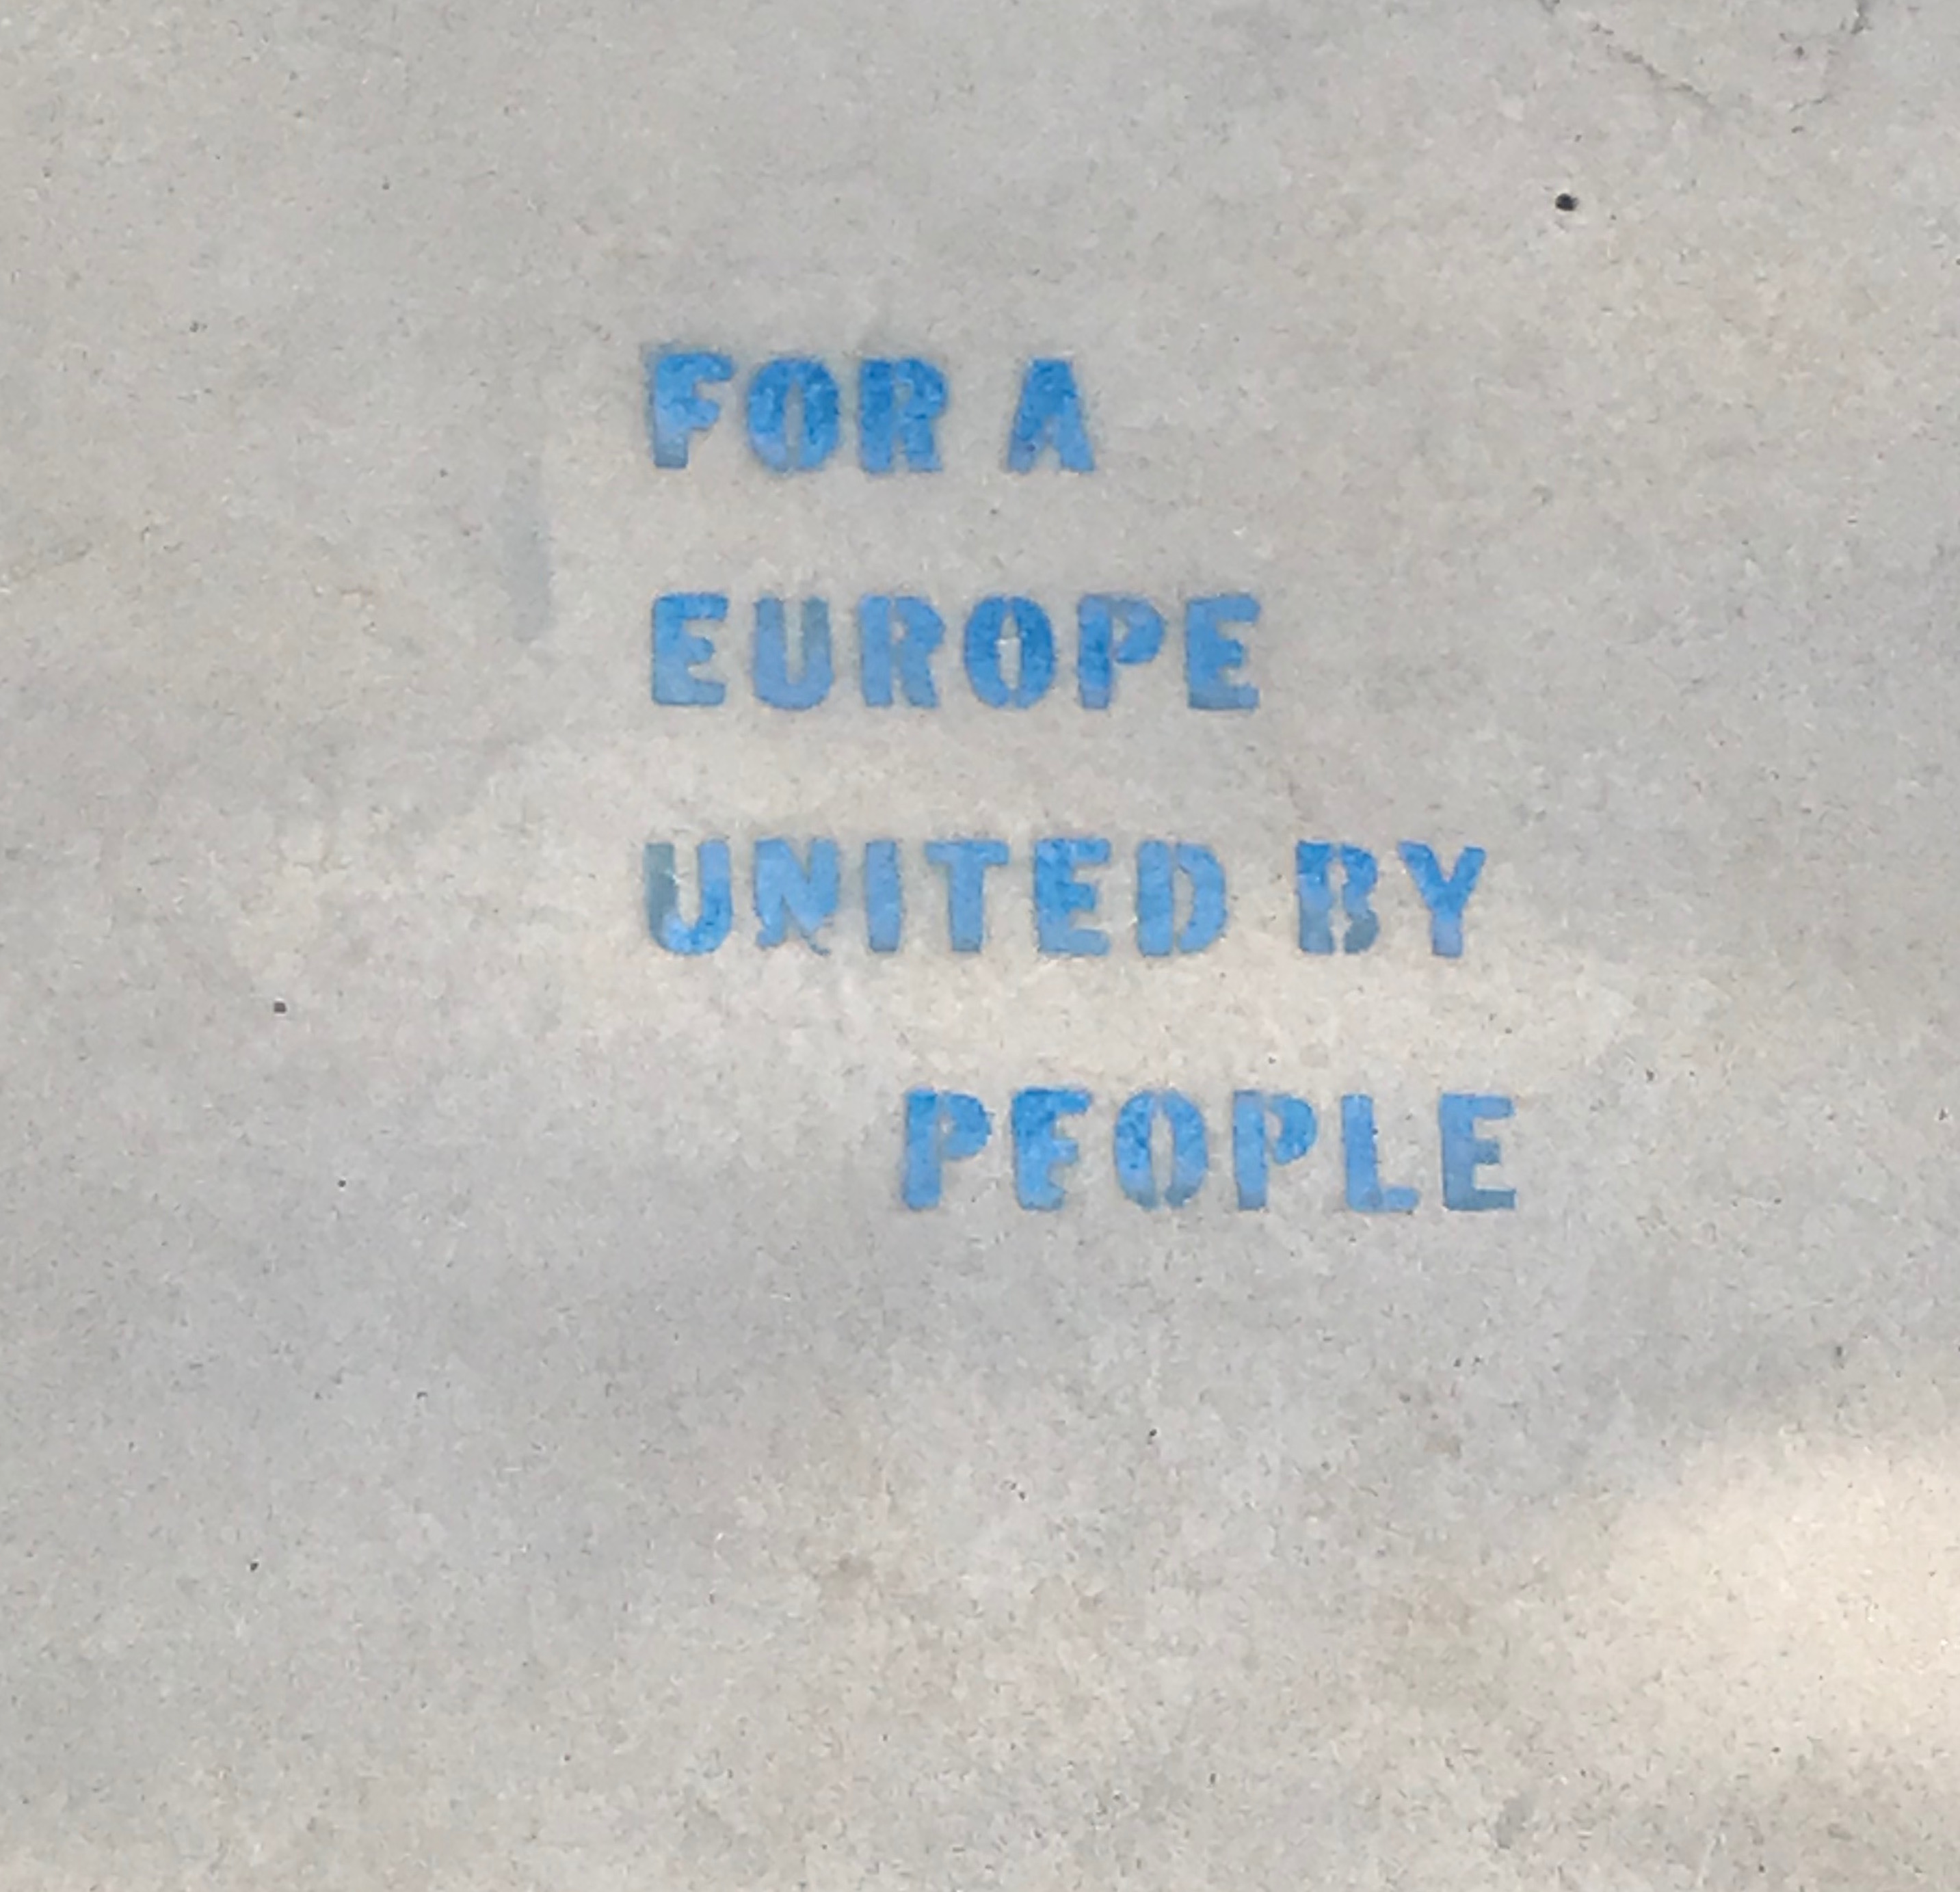 FOR A
EUROPE
UNITED BY
PEOPLE